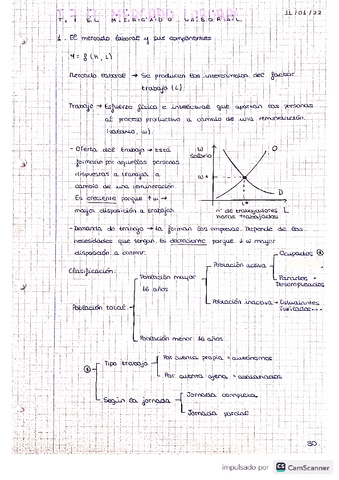 11/01/22
T.7 EL MERCADO LABORAL
1. El mercado laboral y sus componentes.
Y = f (K, L)
Mercado laboral → Se producen los intercambios del factor
trabajo (L)
Trabajo → Esfuerzo físico e intelectual que aportan las personas
al proceso productivo a cambio de una remuneración
(salario, w).
- Oferta del trabajo → Está
formada por aquellas personas
dispuestas a trabajar a
cambio de una remuneración.
Es creciente porque ↑w →
mayor disposición a trabajar.
W
salario
O
W*
D
L*
L
nº de trabajadores
horas trabajadas
- Demanda de trabajo → La forman las empresas. Depende de las
necesidades que tengan. Es decreciente porque ↓w mayor
disposición a contratar.
Clasificación:
Población total
Población mayor
16 años
Población activa
Ocupados *
Parados =
Desempleados
Población inactiva → Estudiantes
Jubilados...
Población menor 16 años
* Tipo trabajo
Por cuenta propia = autónomos
Por cuenta ajena = asalariados
Según la jornada
Jornada completa
Jornada parcial
30
impulsado por CS CamScanner